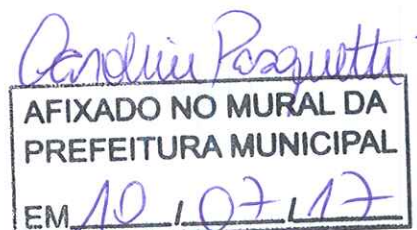 Caroline Pasquetti
AFIXADO NO MURAL DA
PREFEITURA MUNICIPAL
EM 10 / 07 / 17